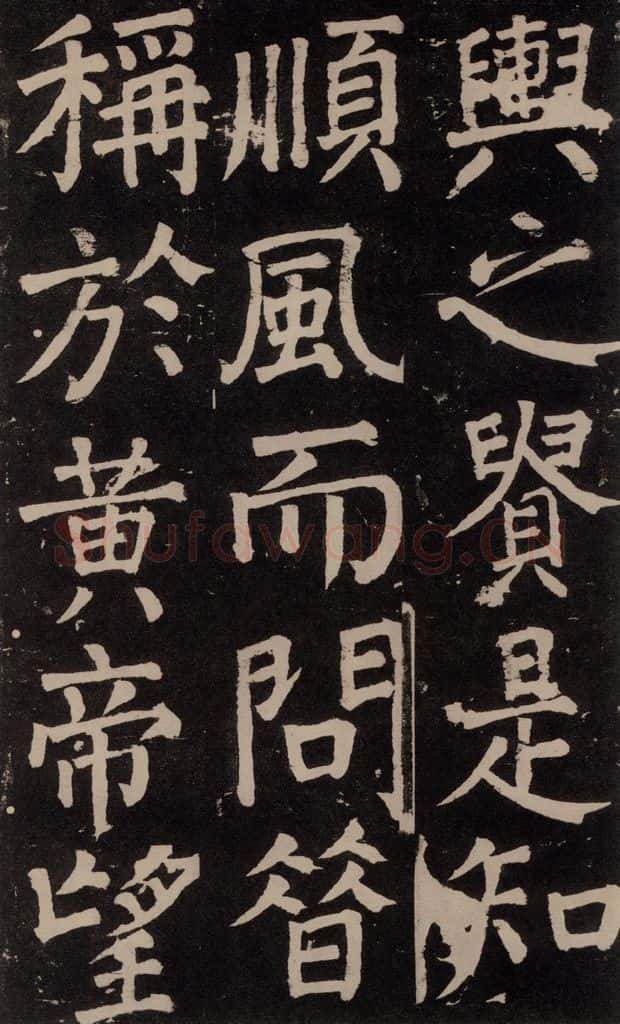 輿之貴是知
順風而問㫺
稱於黃帝望
Shufawang.CN